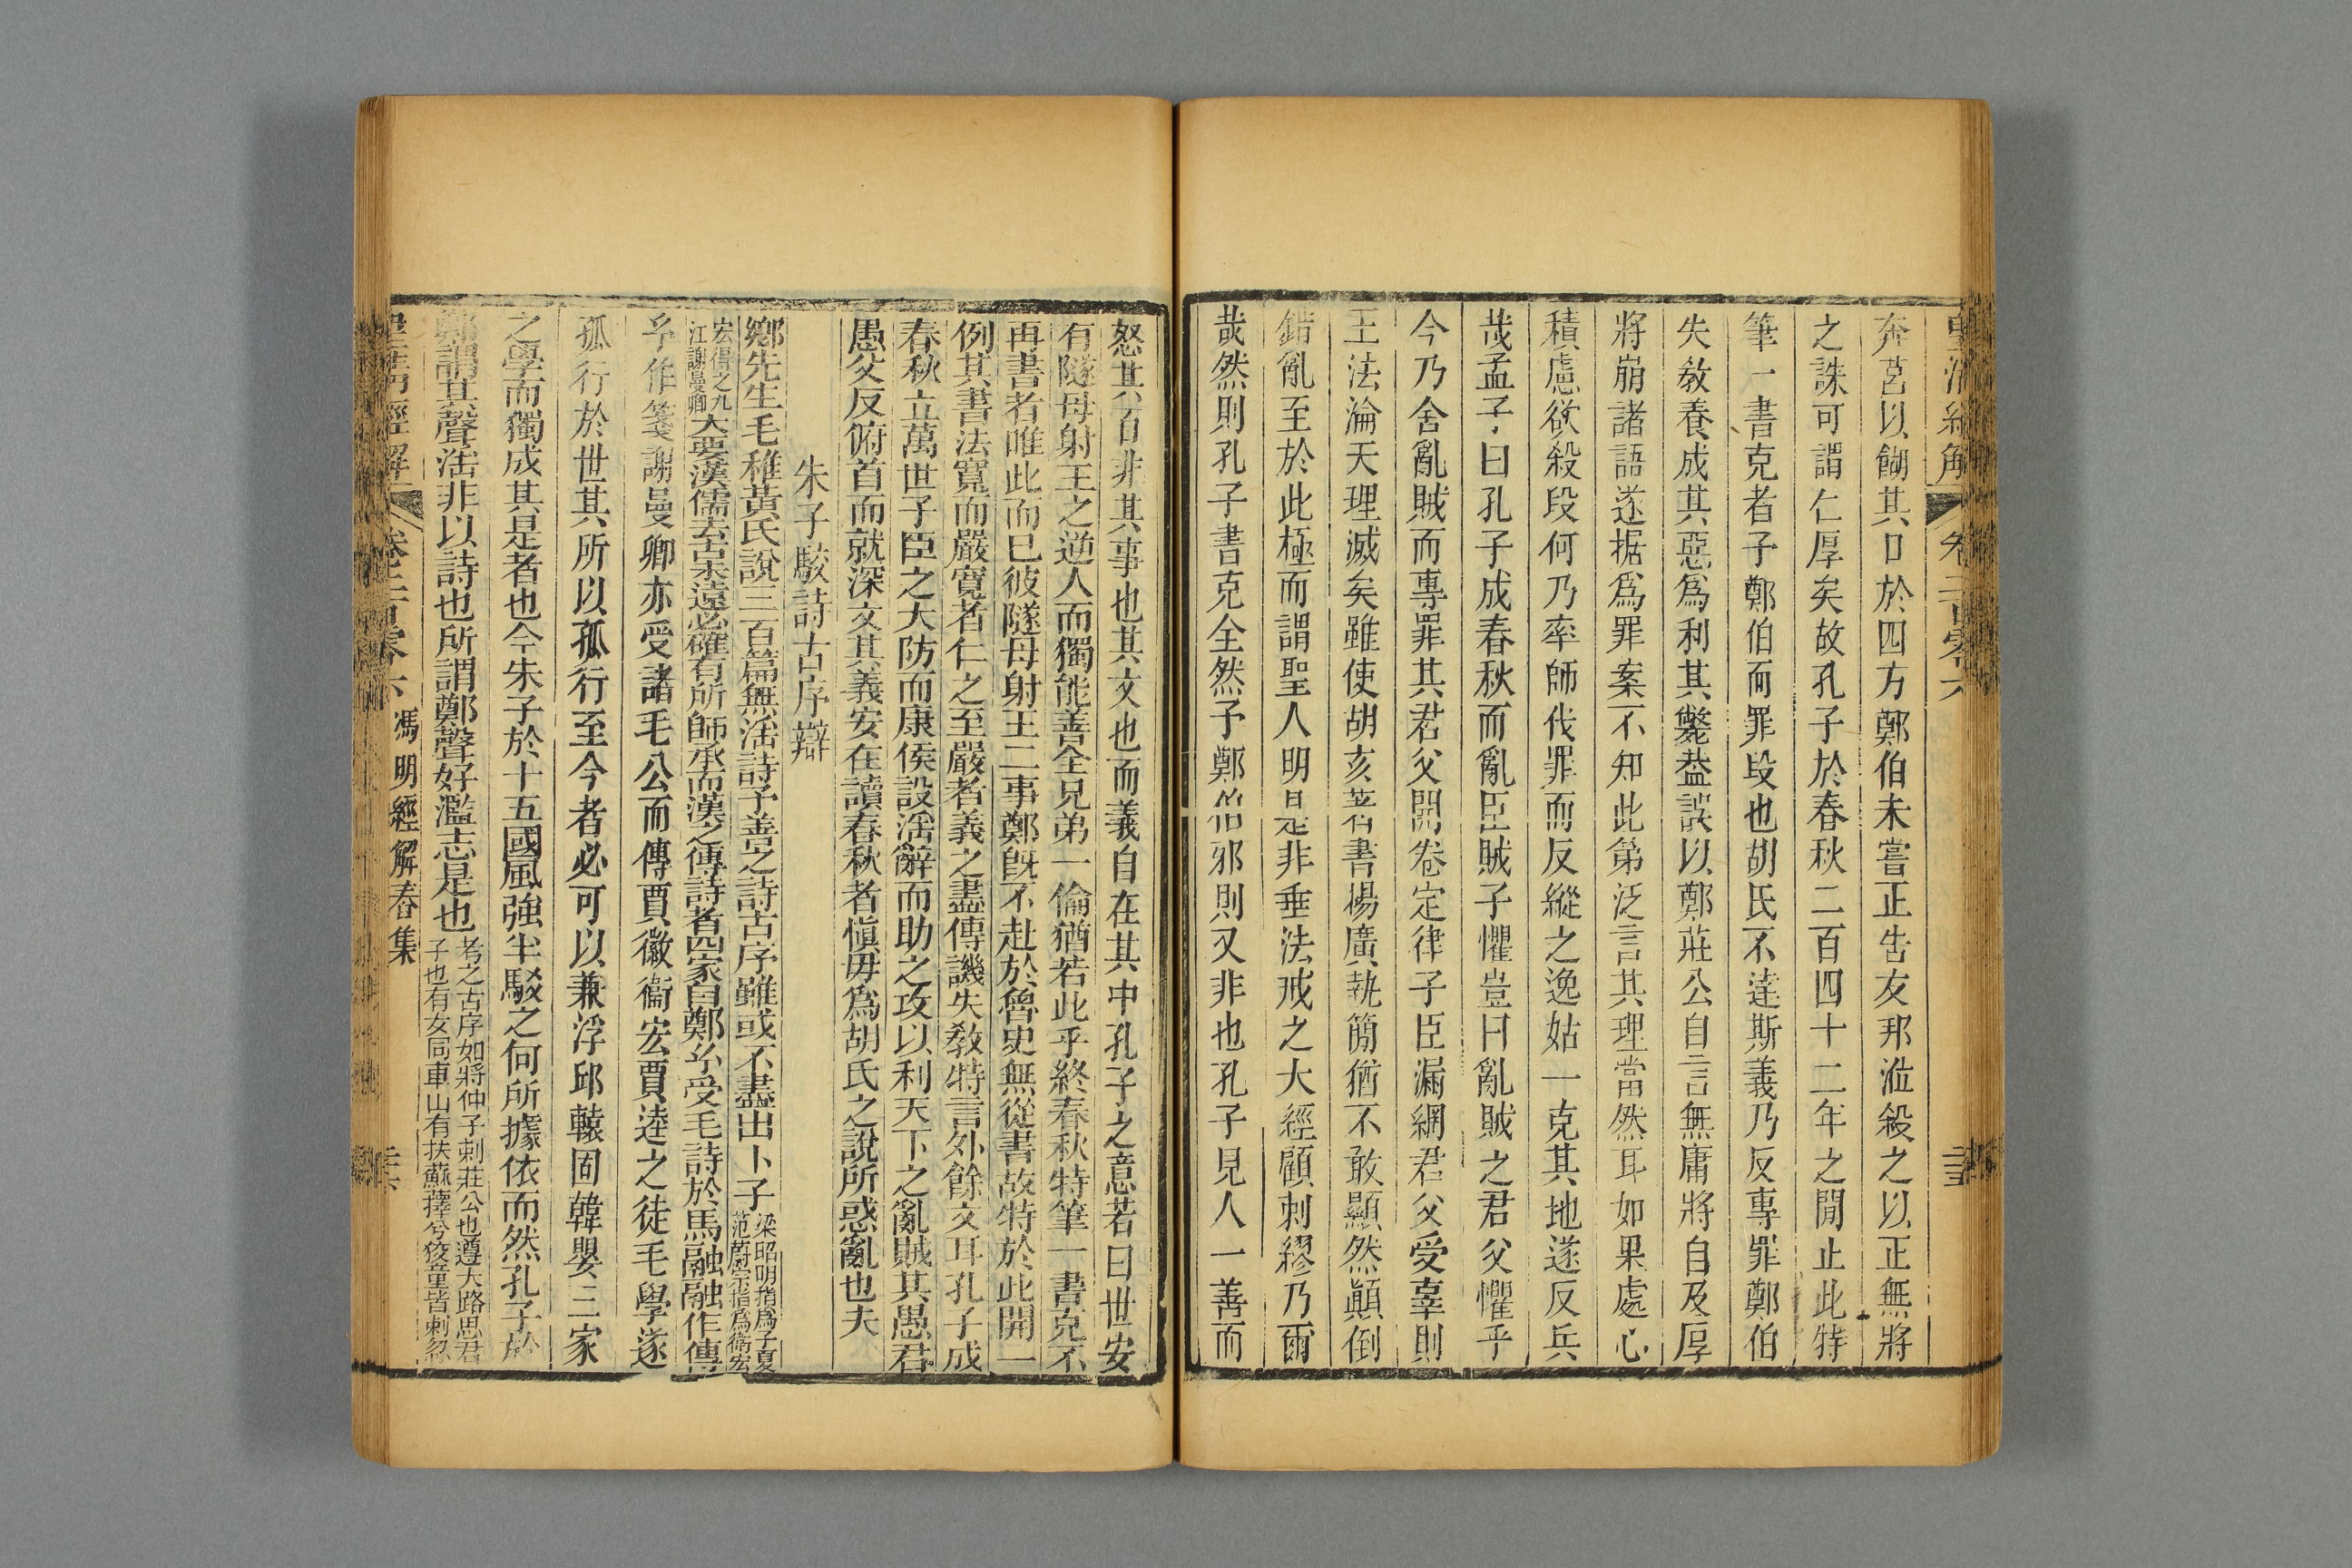 皇清經解 卷二百零六
奔莒以餬其口於四方鄭伯未嘗正告友邦涖殺之以正無將
之誅可謂仁厚矣故孔子於春秋二百四十二年之閒止此特
筆一書克者予鄭伯而罪段也胡氏不達斯義乃反專罪鄭伯
失敎養成其惡爲利其斃葢誤以鄭莊公自言無庸將自及厚
將崩諸語遂据爲罪案不知此第泛言其理當然耳如果處心
積慮欲殺段何乃率師伐罪而反縱之逸姑一克其地遂反兵
哉孟子曰孔子成春秋而亂臣賊子懼豈曰亂賊之君父懼乎
今乃舍亂賊而專罪其君父開卷定律子臣漏網君父受辜則
王法淪天理滅矣雖使胡亥著書楊廣執簡猶不敢顯然顚倒
錯亂至於此極而謂聖人明是非垂法戒之大經顧刺繆乃爾
哉然則孔子書克全然予鄭伯邪則又非也孔子見人一善而
怒其百非其事也其文也而義自在其中孔子之意若曰世安
有隧母射王之逆人而獨能善全兄弟一倫猶若此乎終春秋特筆一書克不
再書者唯此而已彼隧母射王二事鄭旣不赴於魯史無從書故特於此開一
例其書法寬而嚴寬者仁之至嚴者義之盡傳譏失敎特言外餘文耳孔子成
春秋立萬世子臣之大防而康侯設淫辭而助之攻以利天下之亂賊其愚君
愚父反俯首而就深文其義安在讀春秋者愼毋爲胡氏之說所惑亂也夫
朱子駮詩古序辯
鄉先生毛稚黃氏說三百篇無淫詩予善之詩古序雖或不盡出卜子梁昭明指爲子夏范蔚宗指爲衛宏
宏得之九江謝曼卿大要漢儒去古未遠必確有所師承而漢之傳詩者四家自鄭𠔃受毛詩於馬融融作傳
𠔃作箋謝曼卿亦受諸毛公而傳賈徽衞宏賈逵之徒毛學遂
孤行於世其所以孤行至今者必可以兼浮邱轅固韓嬰三家
之學而獨成其是者也今朱子於十五國風強半駮之何所據依而然孔子於
鄭謂其聲淫非以詩也所謂鄭聲好濫志是也考之古序如將仲子刺莊公也遵大路思君子也有女同車山有扶蘇蘀兮狡童皆刺忽
皇淸經解 卷二百零六 馮明經解春集